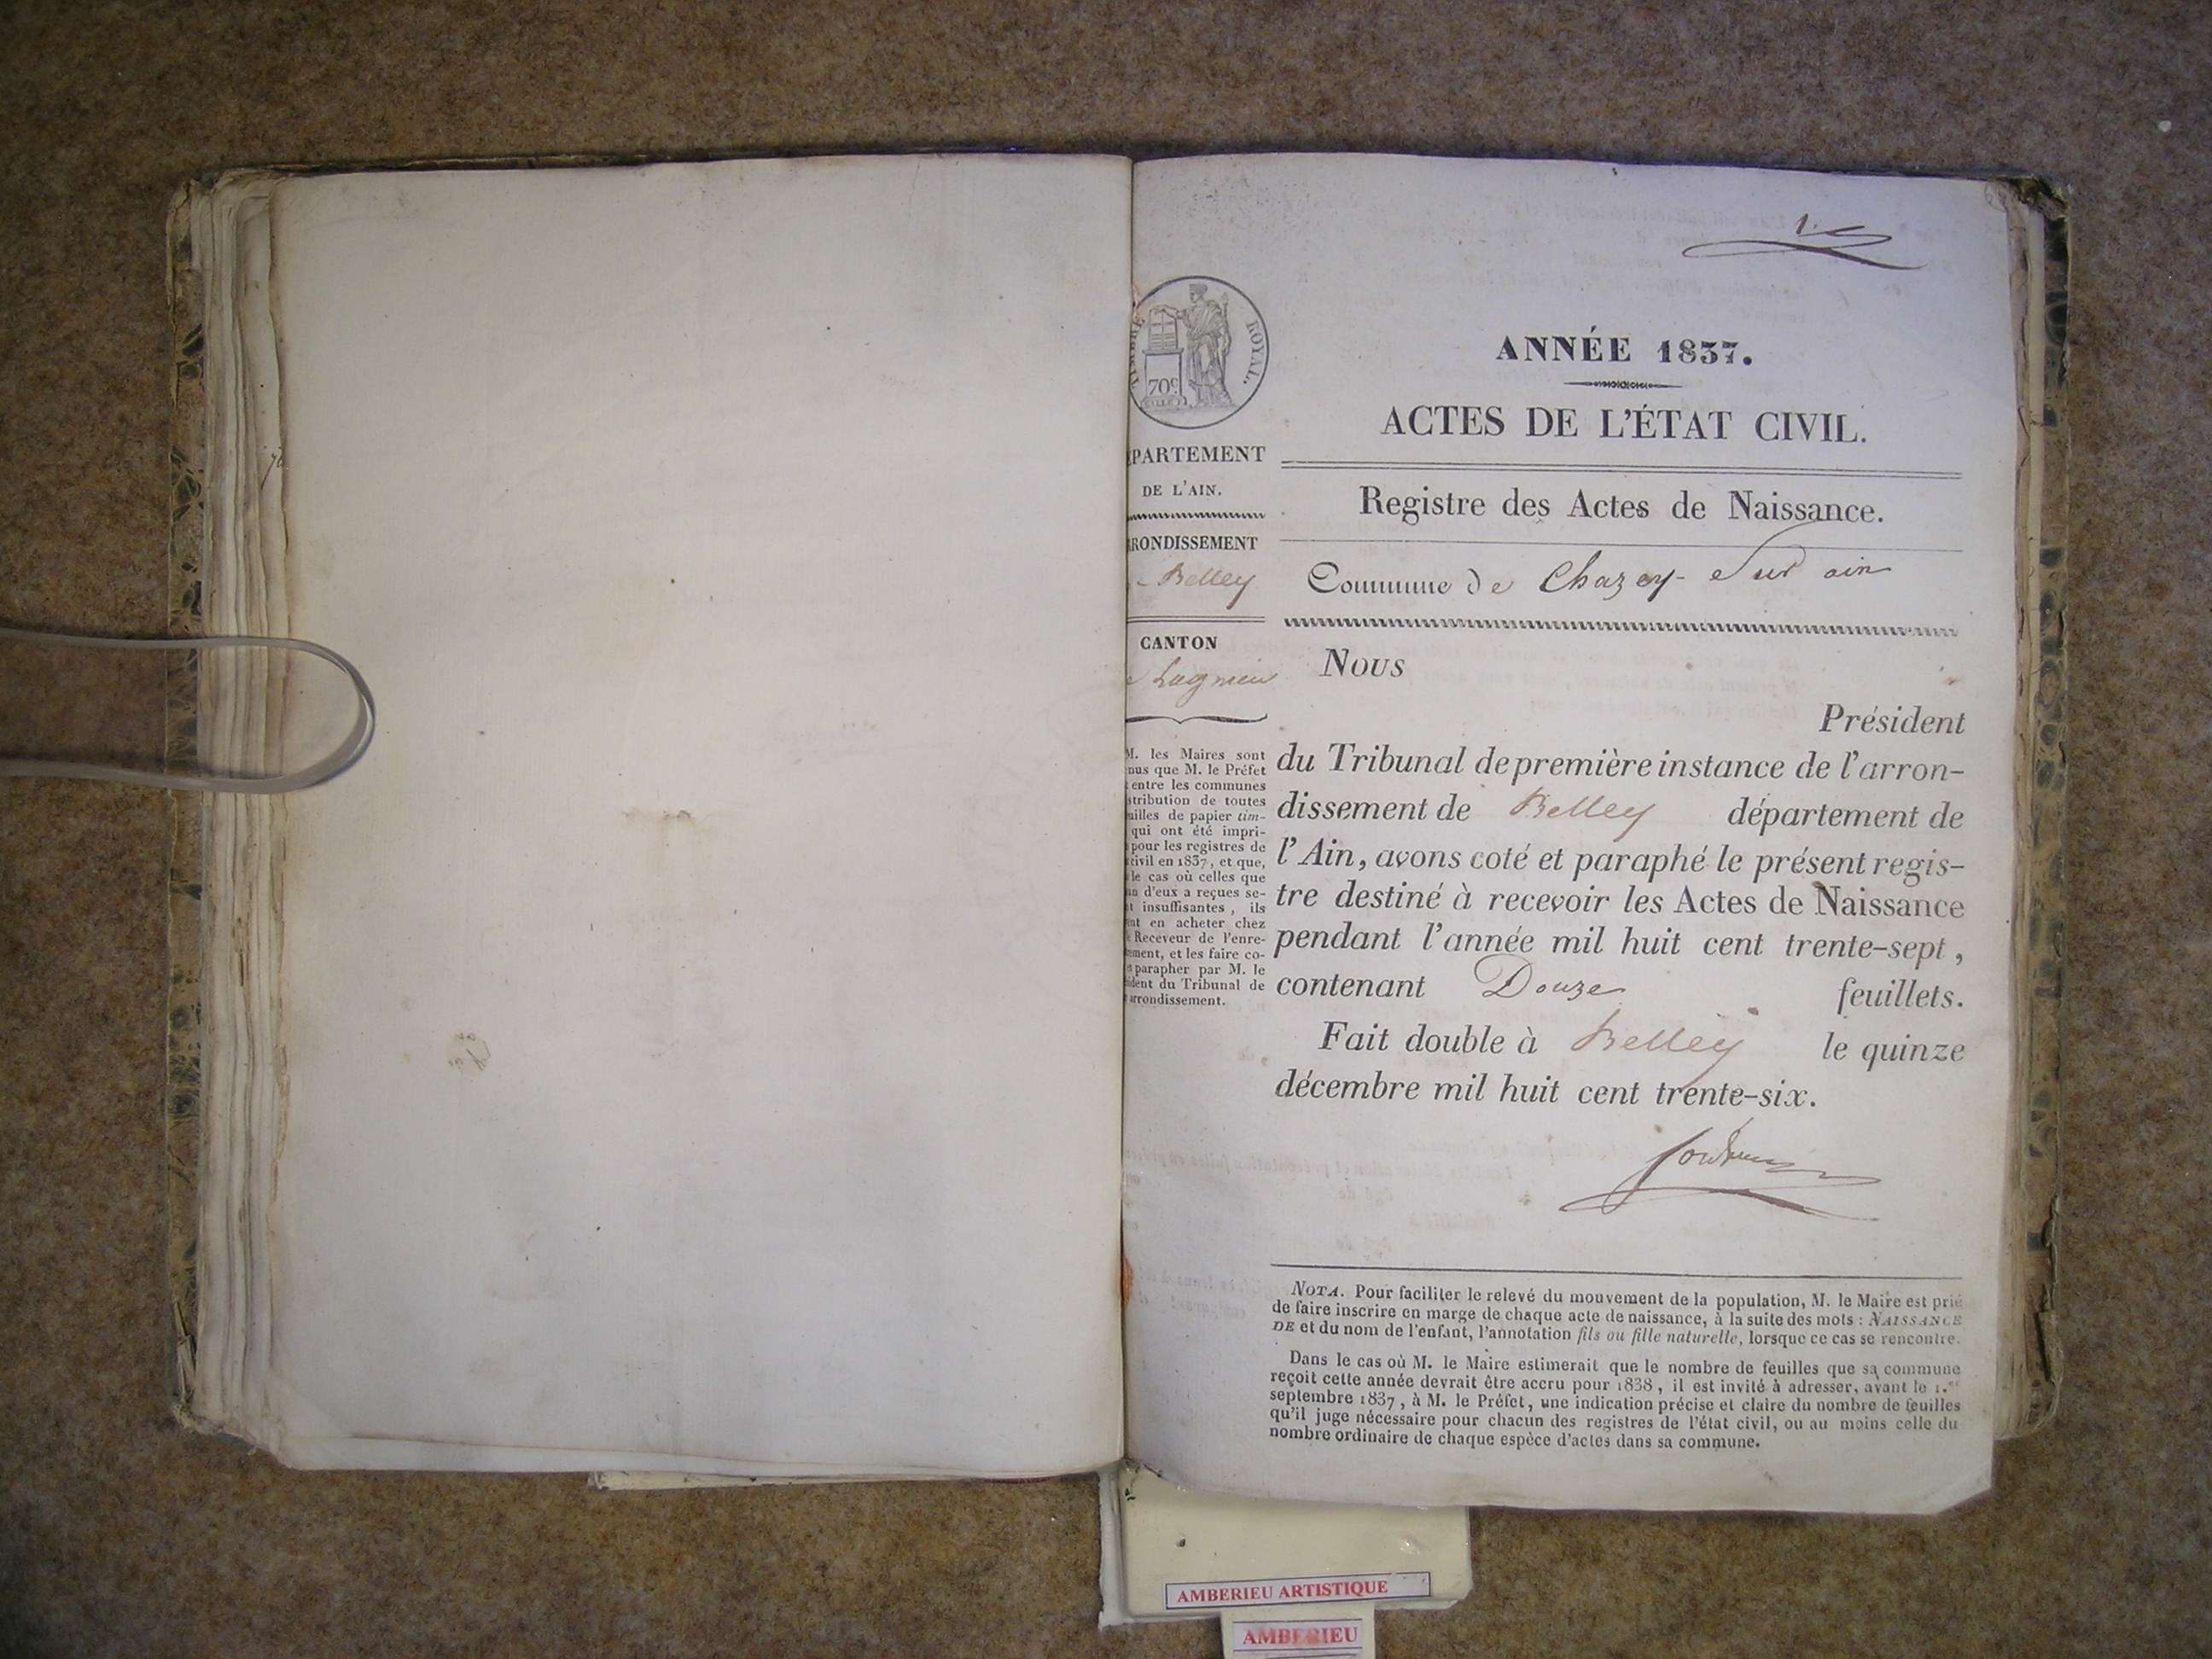 ANNÉE 1837.
ACTES DE L'ÉTAT CIVIL.
Registre des Actes de Naissance.
Commune de Chazey-Sur ain
ROYAL.
70c
PARTEMENT
DE L'AIN.
RONDISSEMENT
Belley
CANTON
Lagnieu
M. les Maires sont
nus que M. le Préfet
entre les communes
stribution de toutes
uilles de papier tim-
qui ont été impri-
pour les registres de
civil en 1837, et que,
le cas où celles que
un d'eux a reçues se-
t insuffisantes, ils
nt en acheter chez
Receveur de l'enre-
ement, et les faire co-
parapher par M. le
ident du Tribunal de
arrondissement.
Nous
Président
du Tribunal de première instance de l'arron-
dissement de Belley département de
l'Ain, avons coté et paraphé le présent regis-
tre destiné à recevoir les Actes de Naissance
pendant l'année mil huit cent trente-sept,
contenant Douze feuillets.
Fait double à Belley le quinze
décembre mil huit cent trente-six.
NOTA. Pour faciliter le relevé du mouvement de la population, M. le Maire est prié
de faire inscrire en marge de chaque acte de naissance, à la suite des mots : NAISSANCE
DE et du nom de l'enfant, l'annotation fils ou fille naturelle, lorsque ce cas se rencontre.
Dans le cas où M. le Maire estimerait que le nombre de feuilles que sa commune
reçoit cette année devrait être accru pour 1838, il est invité à adresser, avant le 1.er
septembre 1837, à M. le Préfet, une indication précise et claire du nombre de feuilles
qu'il juge nécessaire pour chacun des registres de l'état civil, ou au moins celle du
nombre ordinaire de chaque espèce d'actes dans sa commune.
AMBERIEU ARTISTIQUE
AMBERIEU